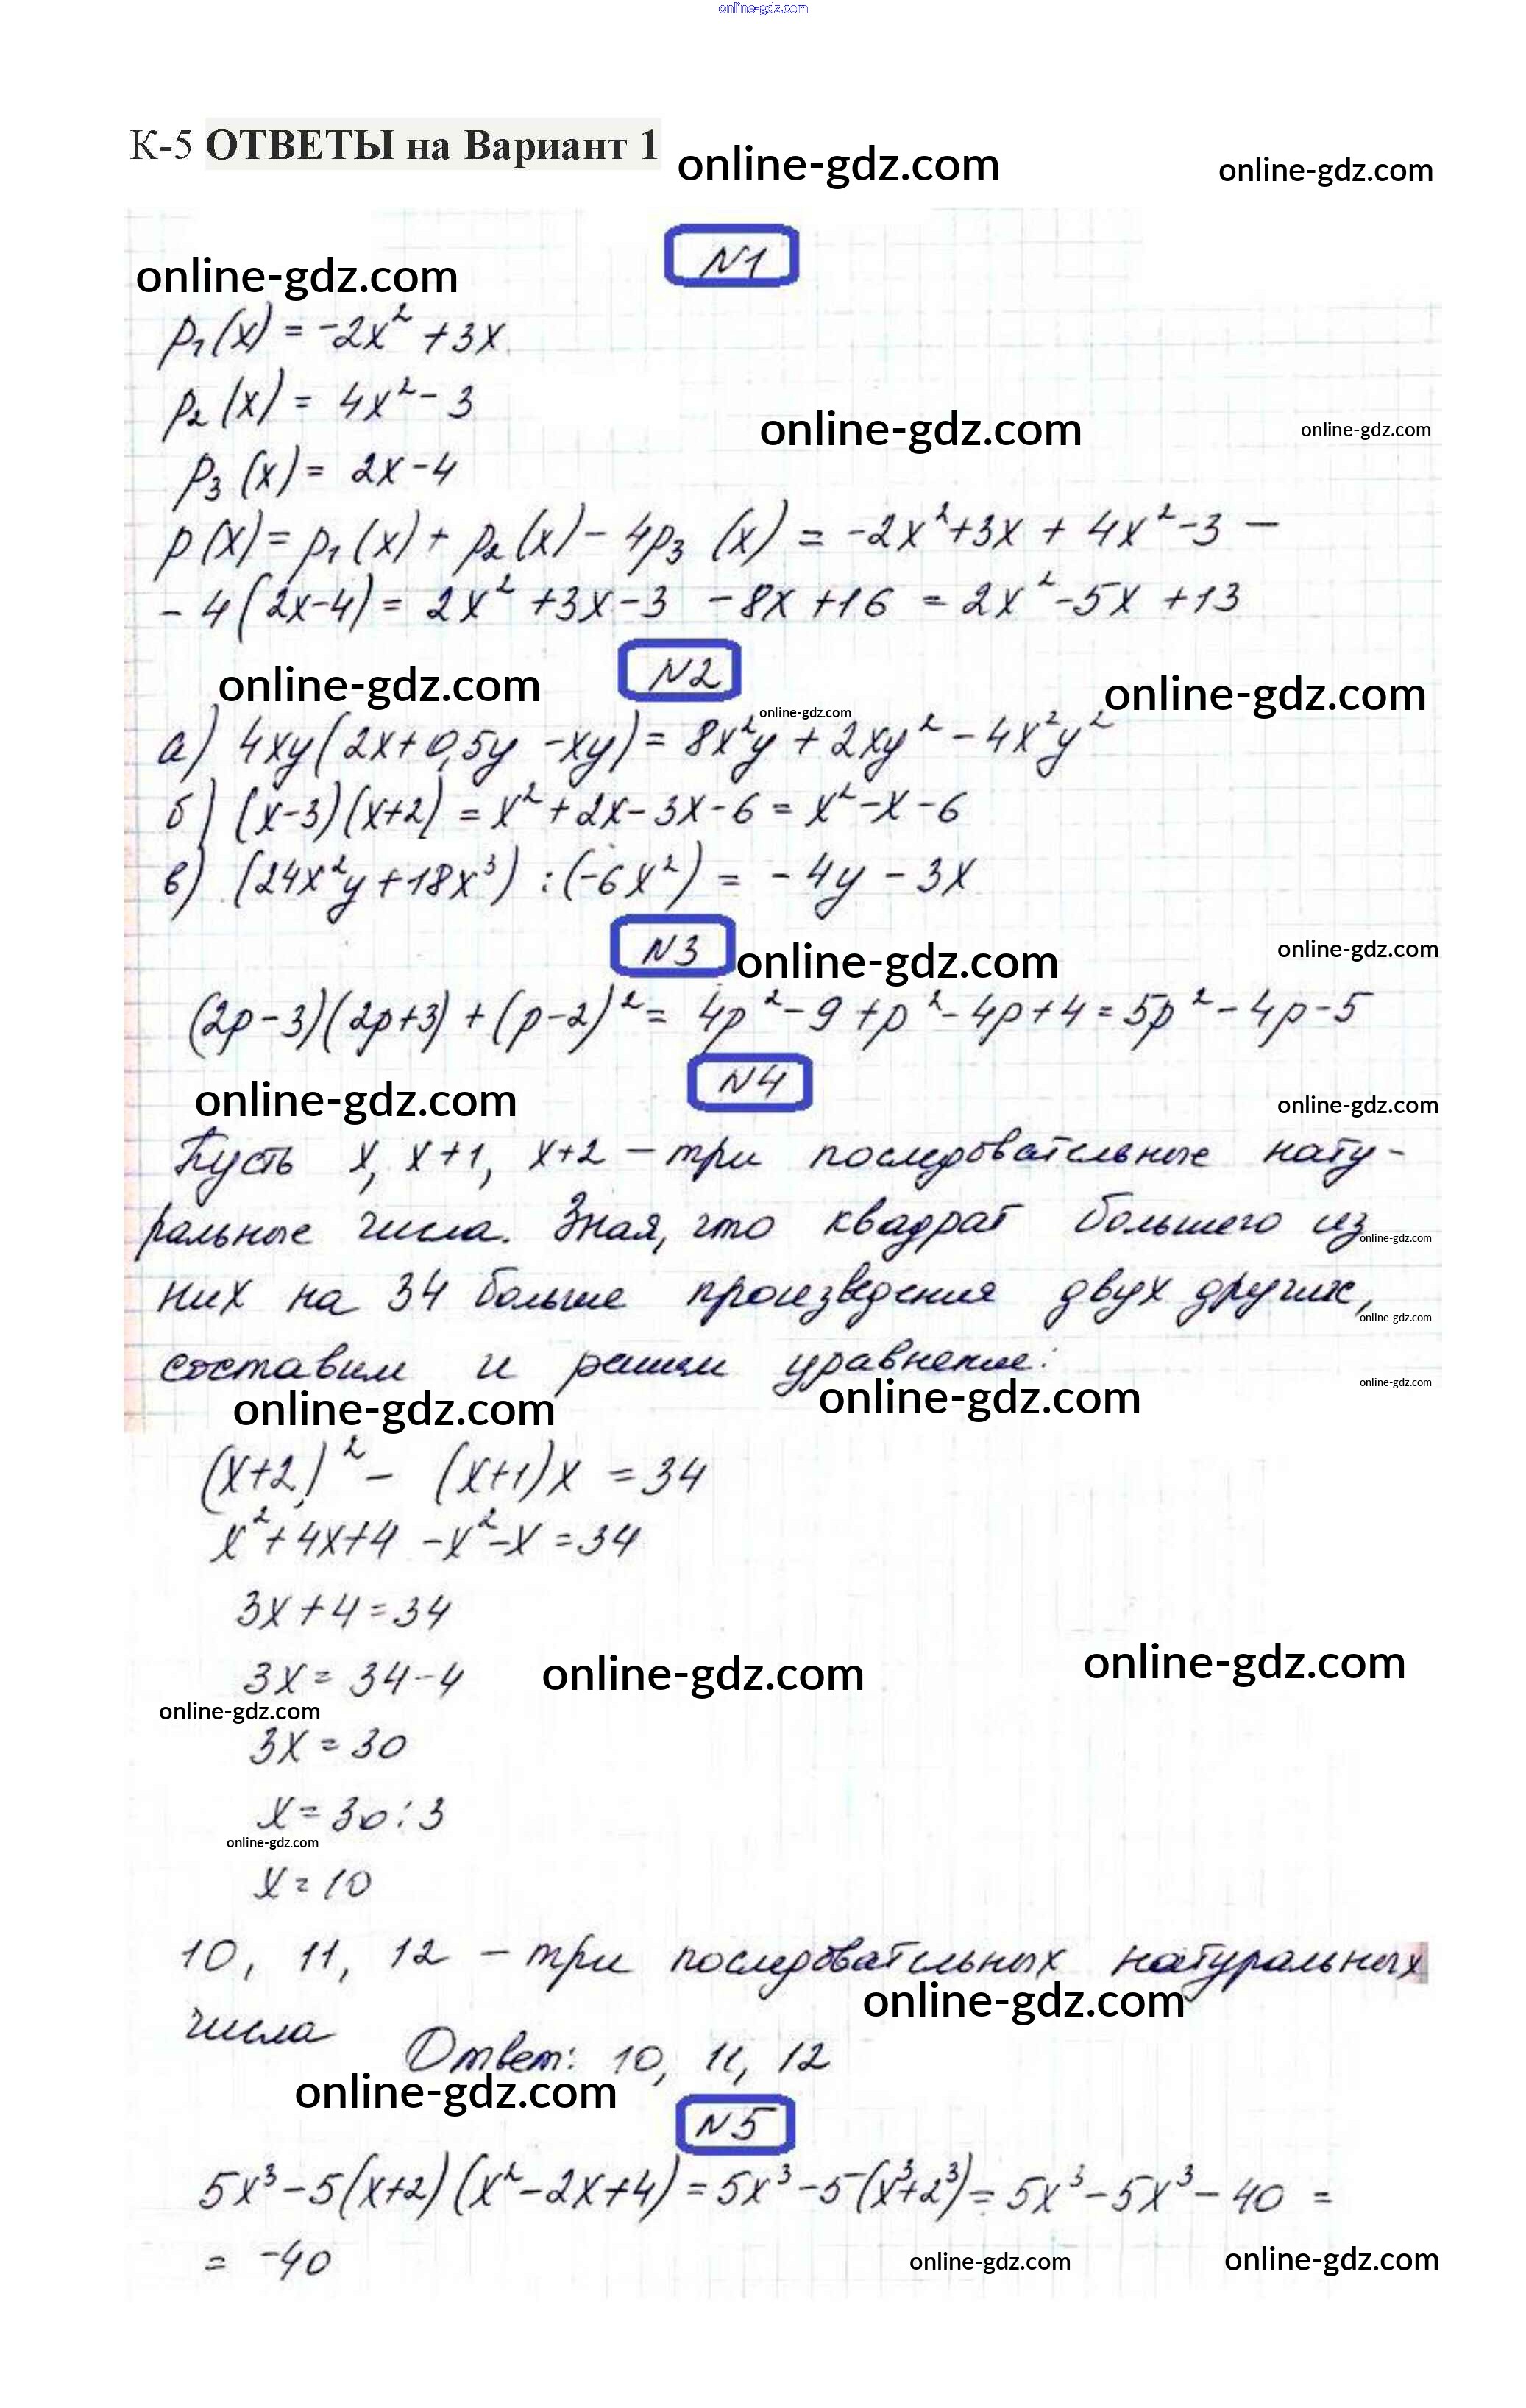 online-gdz.com
К-5 ОТВЕТЫ на Вариант 1
online-gdz.com
online-gdz.com
N1
online-gdz.com
p₁(x) = -2x² + 3x
p₂(x) = 4x² - 3
online-gdz.com
online-gdz.com
p₃(x) = 2x - 4
p(x) = p₁(x) + p₂(x) - 4p₃(x) = -2x² + 3x + 4x² - 3 -
- 4(2x-4) = 2x² + 3x - 3 - 8x + 16 = 2x² - 5x + 13
N2
online-gdz.com
online-gdz.com
online-gdz.com
а) 4xy(2x + 0,5y - xy) = 8x²y + 2xy² - 4x²y²
б) (x-3)(x+2) = x² + 2x - 3x - 6 = x² - x - 6
в) (24x²y + 18x³) : (-6x²) = -4y - 3x
N3
online-gdz.com
online-gdz.com
(2p-3)(2p+3) + (p-2)² = 4p² - 9 + p² - 4p + 4 = 5p² - 4p - 5
N4
online-gdz.com
online-gdz.com
Пусть x, x+1, x+2 – три последовательные нату-
ральные числа. Зная, что квадрат большего из
online-gdz.com
них на 34 больше произведения двух других,
online-gdz.com
составим и решим уравнение:
online-gdz.com
online-gdz.com
online-gdz.com
(x+2)² - (x+1)x = 34
x² + 4x + 4 - x² - x = 34
3x + 4 = 34
3x = 34 - 4
online-gdz.com
online-gdz.com
online-gdz.com
3x = 30
x = 30 : 3
online-gdz.com
x = 10
10, 11, 12 – три последовательных натуральных
online-gdz.com
числа Ответ: 10, 11, 12
online-gdz.com
N5
5x³ - 5(x+2)(x² - 2x + 4) = 5x³ - 5(x³+2³) = 5x³ - 5x³ - 40 =
= -40
online-gdz.com
online-gdz.com